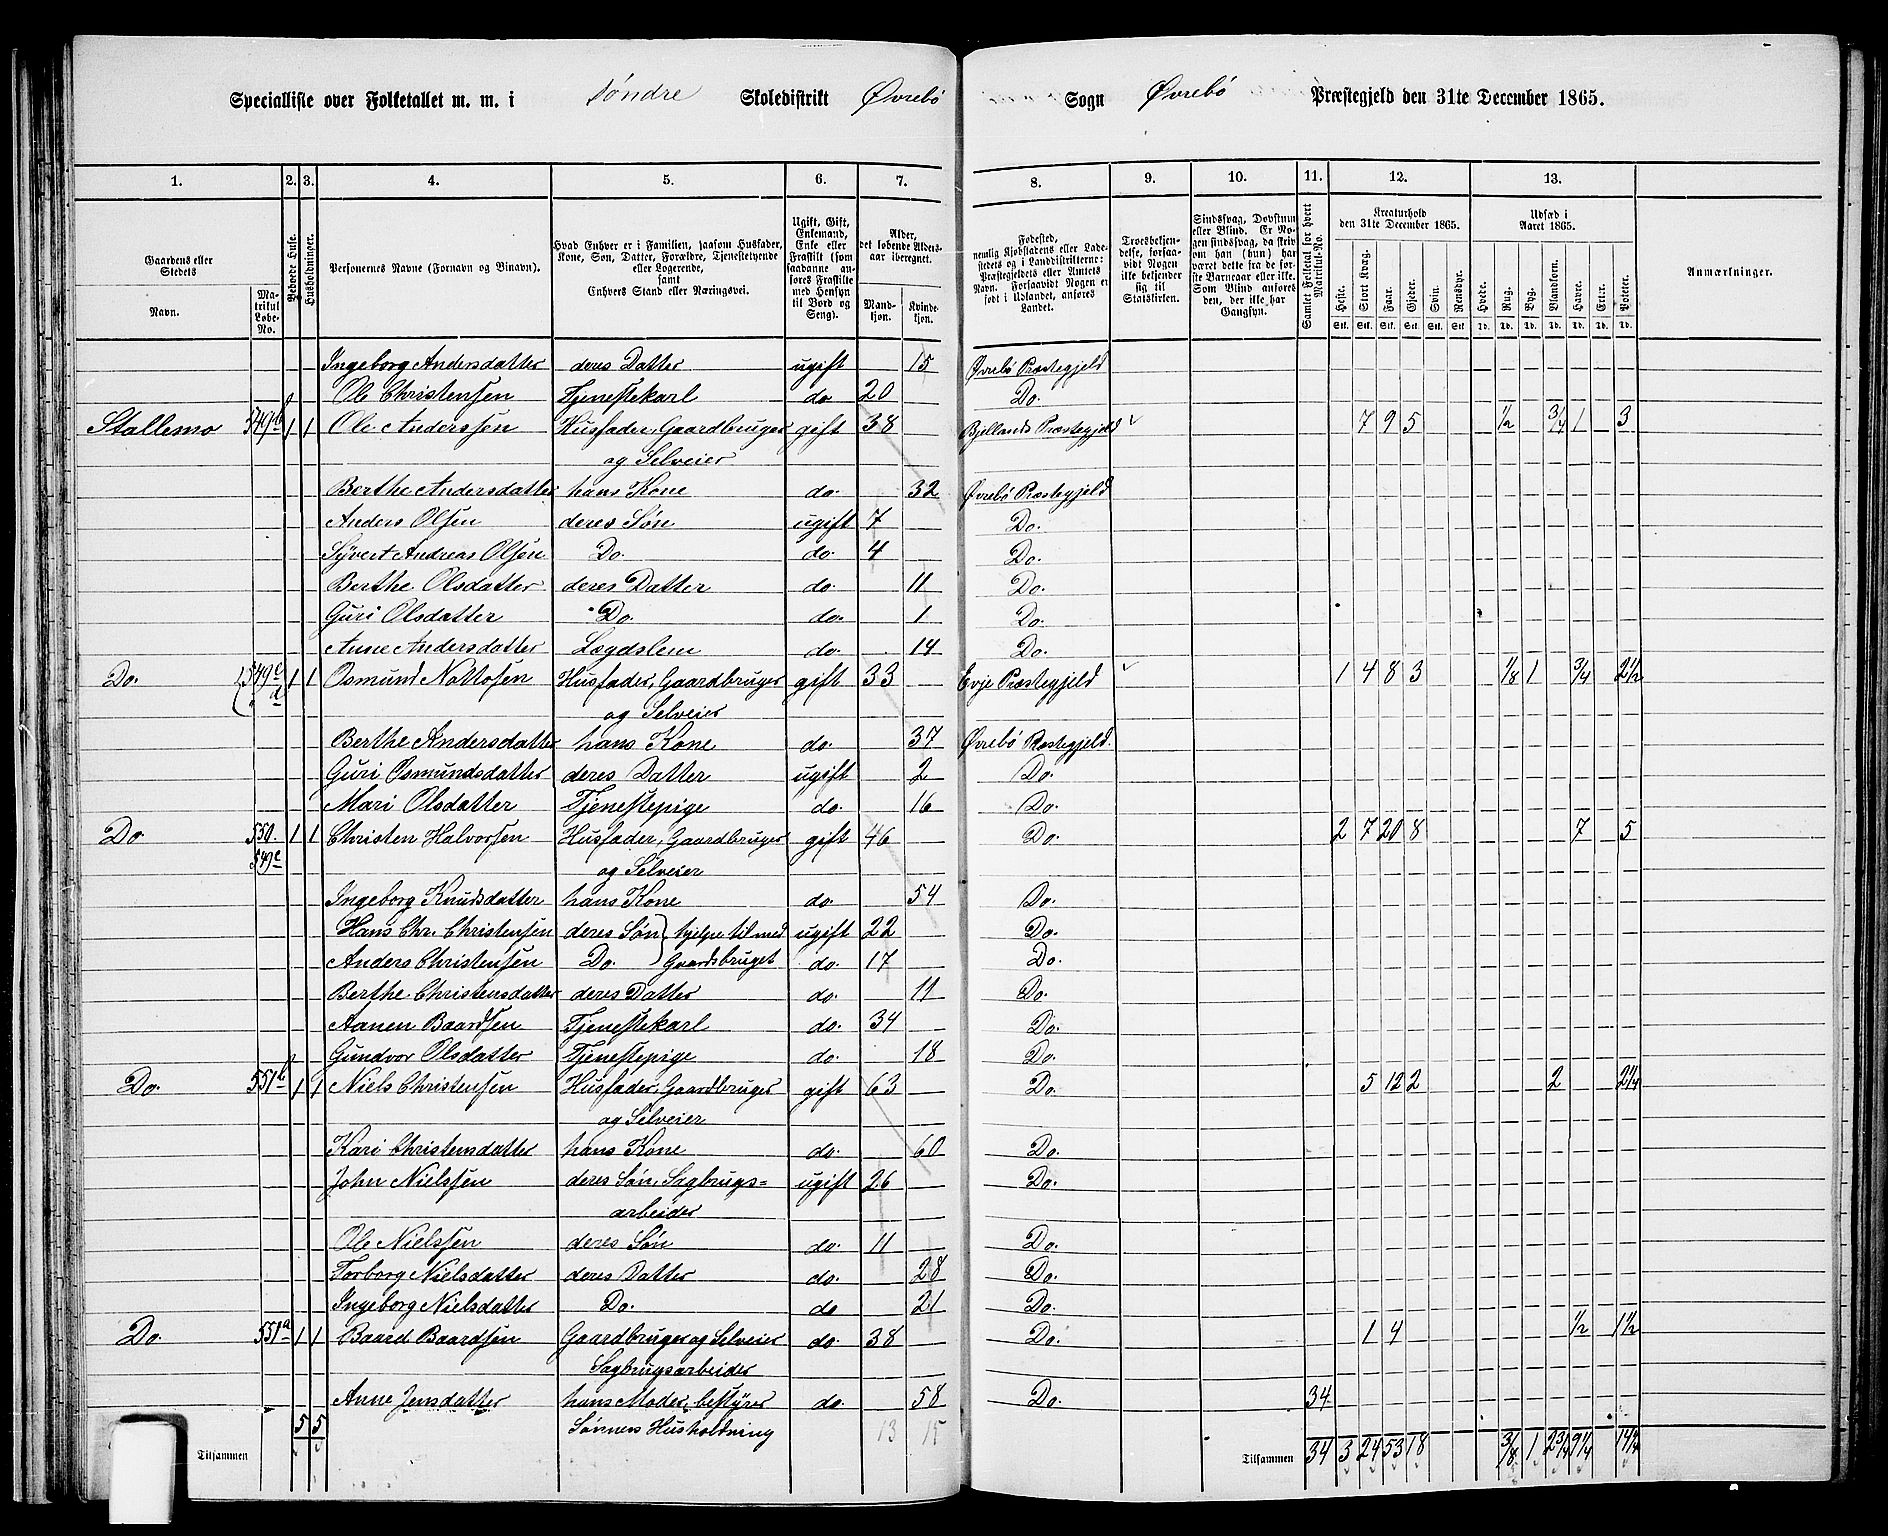 Specialliste over Folketallet m. m. i Søndre Skoledistrikt Øvrebö Sogn Øvrebö Præstegjeld den 31te December 1865.
1. 2. 3. 4. 5. 6. 7. 8. 9. 10. 11. 12. 13.
Gaardens eller Stedets
Navn. Matrikul Løbe-No.
Beboede Huse.
Husholdninger.
Personernes Navne (Fornavn og Binavn).
Hvad Enhver er i Familien, saasom Husfader, Kone, Søn, Datter, Forældre, Tjenestetyende eller Logerende, samt Enhvers Stand eller Næringsvei.
Ugift, Gift, Enkemand, Enke eller Fraskilt (som saadanne anføres Fraskilte med Hensyn til Bord og Seng).
Alder, det løbende Aldersaar iberegnet.
Mandkjøn. Kvindekjøn.
Fødested, nemlig Kjøbstadens eller Ladestedets og i Landdistrikterne: Præstegjeldets eller Amtets Navn. Forsaavidt Nogen er født i Udlandet, anføres Landet.
Troesbekjendelse, forsaavidt Nogen ikke bekjender sig til Statskirken.
Sindssvag, Døvstum eller Blind. Er Nogen sindssvag, da skrives om han (hun) har været dette fra de første Barneaar eller ikke. Som Blind anføres den, der ikke har Gangsyn.
Samlet Folketal for hvert Matrikul-No.
Kreaturhold den 31te December 1865.
Heste. Stort Kvæg. Faar. Gjeder. Svin. Rensdyr.
Udsæd i Aaret 1865.
Hvede. Rug. Byg. Blandkorn. Havre. Erter. Poteter.
Anmærkninger.
Ingeborg Andersdatter deres Datter ugift 15 Øvrebö Præstegjeld
Ole Christensen Tjenestekarl do 20 Do.
Stallemo 549b 1 1 Ole Anderssen Husfader, Gaardbruger gift 38 Bjellands Præstegjeld 7 9 5 1/2 3/4 1 3
og Selveier
Berthe Andersdatter hans Kone do. 32 Øvrebö Præstegjeld
Anders Olsen deres Søn ugift 7 Do.
Syvert Andreas Olsen Do. do. 4 Do.
Berthe Olsdatter deres Datter do. 11 Do.
Guri Olsdatter Do. do. 1 Do.
Anne Andersdatter Lægdslem do. 14 Do.
Do. 549c d 1 1 Osmund Nottosen Husfader, Gaardbruger gift 33 Evje Præstegjeld 1 4 8 3 1/8 1 3/4 2 1/2
og Selveier
Berthe Andersdatter hans Kone do. 37 Øvrebö Præstegjeld.
Guri Osmundsdatter deres Datter ugift 2 Do.
Mari Olsdatter Tjenestepige do. 16 Do.
Do 550. 1 1 Christen Halvorsen Husfader, Gaardbruger gift 46 Do. 2 7 20 8 7 5
549e og Selveier
Ingeborg Knudsdatter hans Kone do. 54 Do.
Hans Chr. Christensen deres Søn hjelpe til med ugift 22 Do.
Anders Christensen Do. Gaardsbruget do. 17 Do.
Berthe Christensdatter deres Datter do. 11 Do.
Aanen Baardsen Tjenestekarl do. 34 Do.
Gundvor Olsdatter Tjenestepige do. 18 Do.
Do. 551b 1 1 Niels Christensen Husfader, Gaardbruger gift 63 Do. 5 12 2 2 2 1/4
og Selveier
Kari Christensdatter hans Kone do. 60 Do.
John Nielssen deres Søn, Sagbrugs= ugift 26 Do.
arbeider
Ole Nielssen deres Søn do. 11 Do.
Torborg Nielsdatter deres Datter do. 28 Do.
Ingeborg Nielsdatter Do. do 21 Do.
Do. 551a 1 1 Baard Baardsen Gaardbruger og Selveier do. 38 Do. 1 4 1/2 1 1/2
Sagbrugsarbeider
Anne Jensdatter hans Moder, bestyrer do. 58 Do. 34
5 5 Sønnens Husholdning 13 15
Tilsammen Tilsammen 34 3 24 53 18 3/8 1 2 3/4 9 1/4 14 1/4